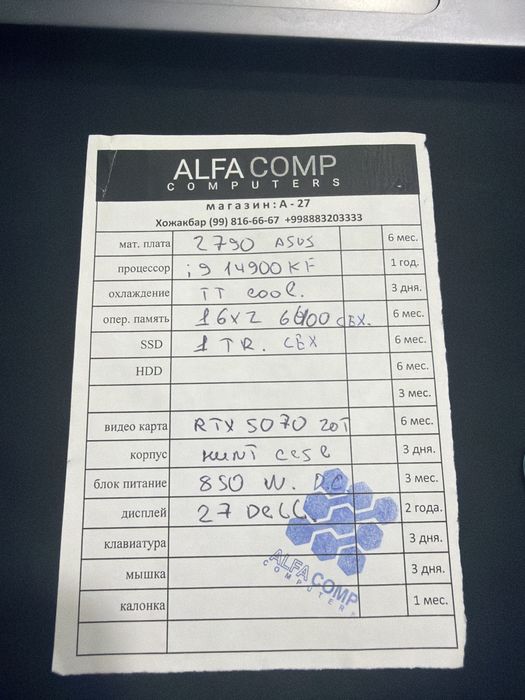 ALFA COMP
COMPUTERS
магазин: А - 27
Хожакбар (99) 816-66-67 +998883203333
мат. плата 2790 ASUS 6 мес.
процессор i9 14900KF 1 год.
охлаждение TT cool. 3 дня.
опер. память 16x2 6400 CEX. 6 мес.
SSD 1 TR. CEX 6 мес.
HDD 6 мес.
3 мес.
видео карта RTX 5070 6 мес.
корпус case 3 дня.
блок питание 850 W. 3 мес.
дисплей 27 Dell. 2 года.
клавиатура 3 дня.
мышка 3 дня.
калонка 1 мес.
ALFA COMP
COMPUTERS